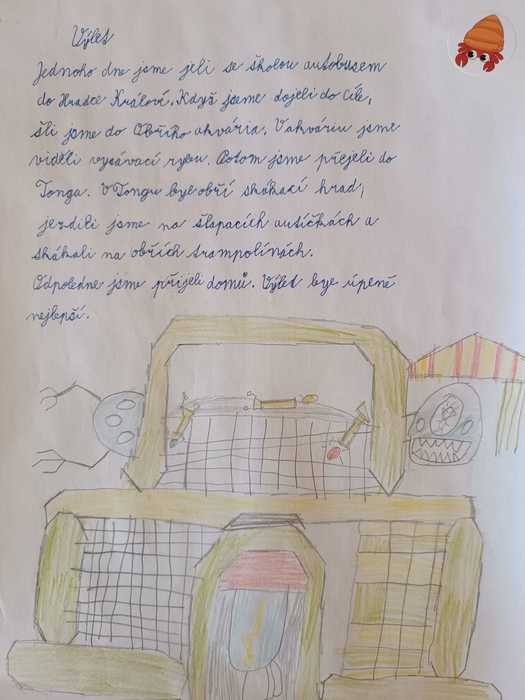 Výlet
Jednoho dne jsme jeli se školou autobusem
do Hradce Králové. Když jseme dojeli do cíle,
šli jsme do Obřího akvária. V akváriu jsme
viděli vycávací rybu. Potom jsme přejeli do
Tonga. V Tongu byl obří skákací hrad,
jezdili jsme na šlapacích autíčkách a
skákali na obřích trampolínách.
Odpoledne jsme přijeli domů. Výlet bye úpeně
nejlepší.